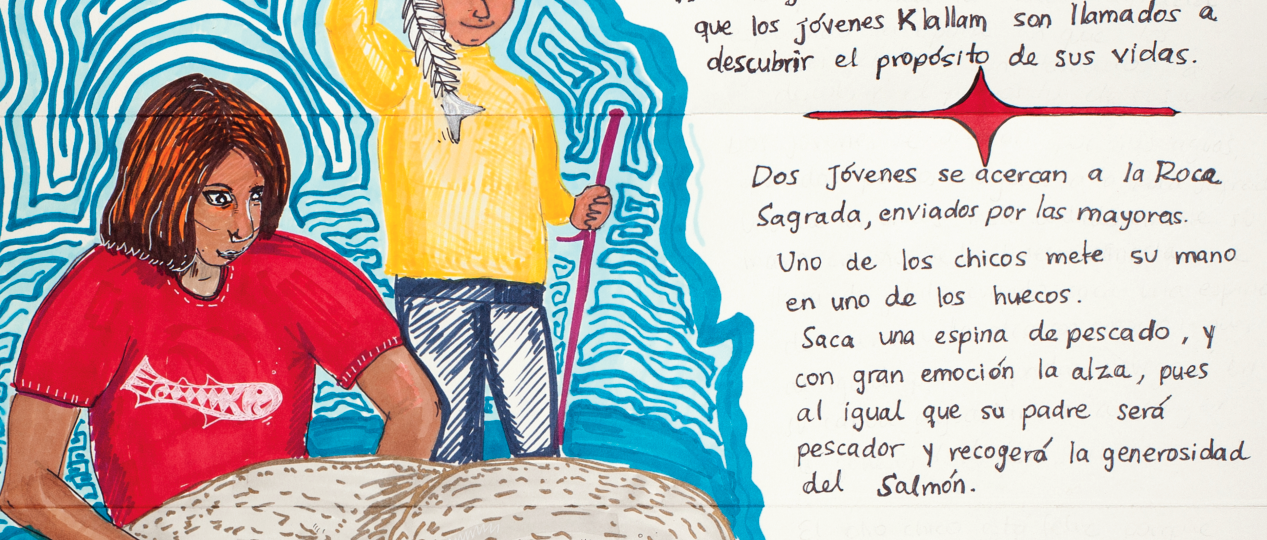 que los jóvenes Klallam son llamados a
descubrir el propósito de sus vidas.
Dos Jóvenes se acercan a la Roca
Sagrada, enviados por las mayores.
Uno de los chicos mete su mano
en uno de los huecos.
Saca una espina de pescado, y
con gran emoción la alza, pues
al igual que su padre será
pescador y recogerá la generosidad
del Salmón.